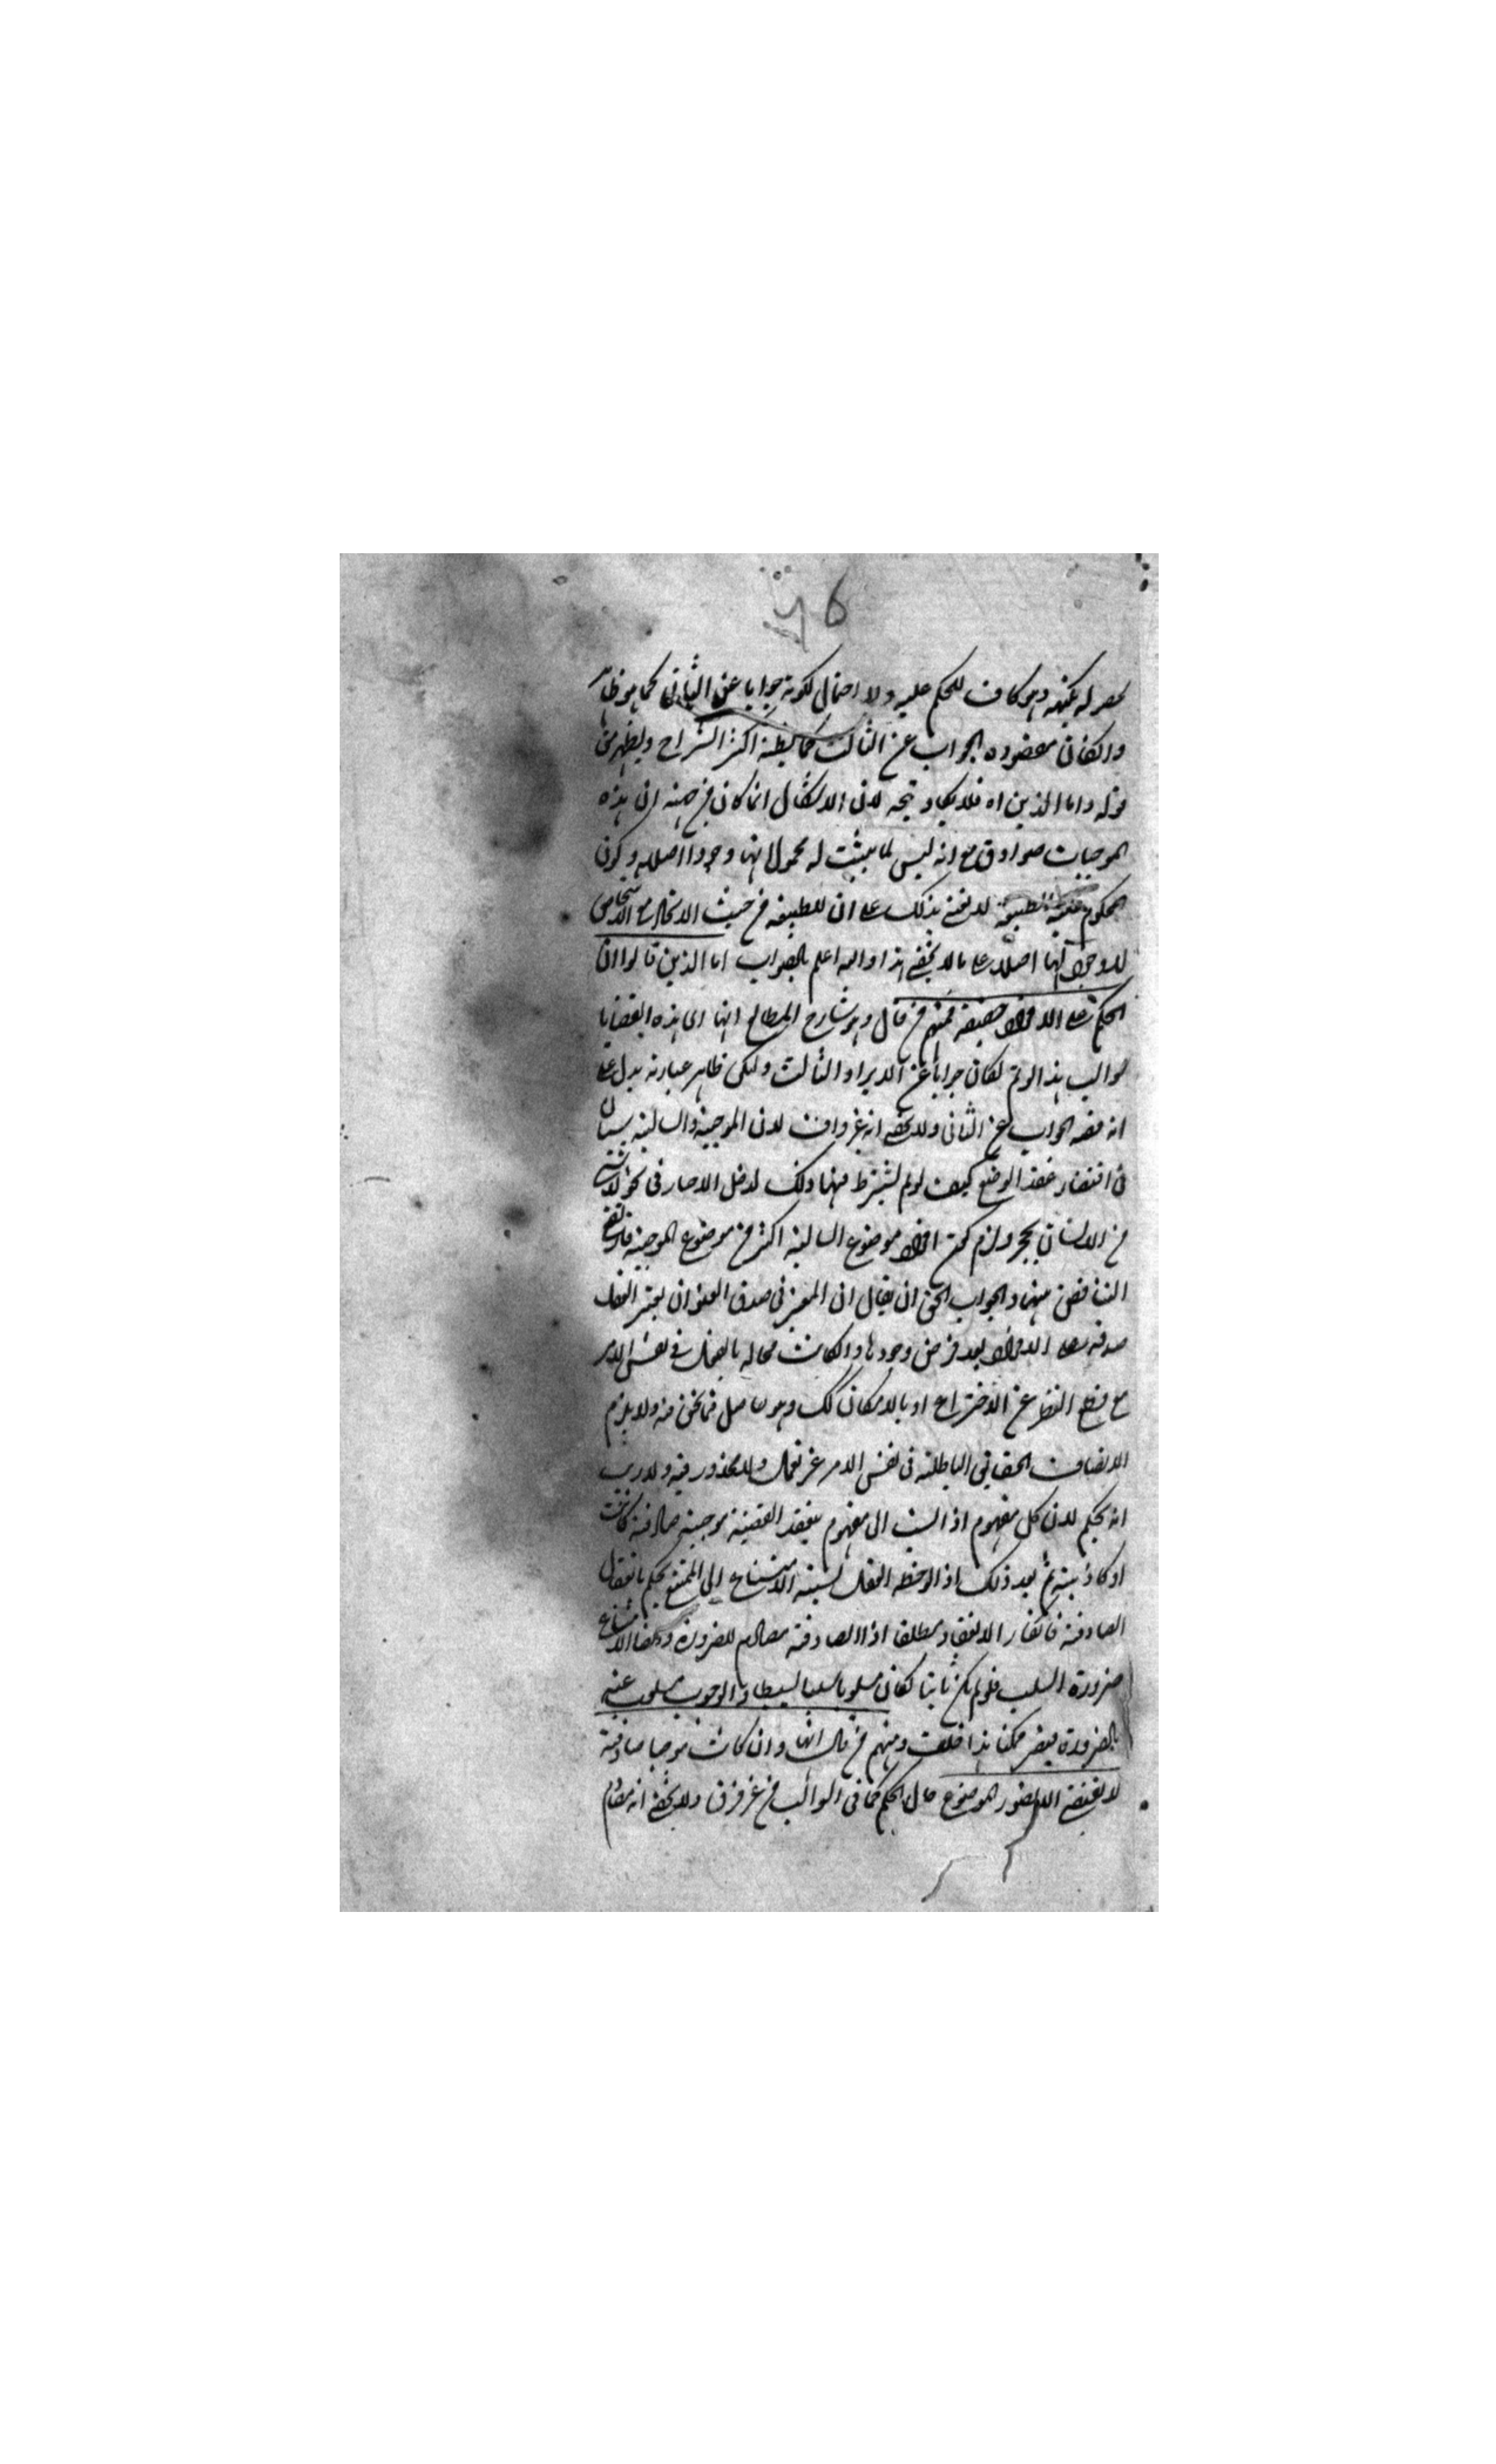 ٥٦
وهو كاف للحكم عليه ولا احتمال لكونه جوابا عن الثاني كما هو ظاهر
وان كان مقصوده الجواب عن الثالث كما يظنه اكثر الشراح ويظهر من
قوله واما الذين اه فلا يكاد يتجه لان الاشكال انما كان من جهة ان هذه
الموجبات صوادق مع انه ليس لما يثبت له محمولاتها وجود اصلا وكون
المحكوم عليه الطبيعة لا يغني بذلك على ان للطبيعة من حيث الاتحاد مع الاشخاص
لا وجود لها اصلا على ما لا يخفى هذا والله اعلم بالصواب اما الذين قالوا ان
الحكم على الافراد حقيقة فمنهم من قال وهو شارح المطالع انها اى هذه القضايا
سوالب هذا لو تم لكان جوابا عن الايراد الثالث ولكن ظاهر عبارته يدل على
انه قصد الجواب عن الثاني ولا يخفى انه غير واف لان الموجبة والسالبة سيان
في اقتضاء عقد الوضع كيف لو لم يشترط فيها ذلك لدخل الاحجار في نحو لا شيء
من الانسان بحجر ولزم كون افراد موضوع السالبة اكثر من موضوع الموجبة فارتفع
التناقض بينهما والجواب الحق ان يقال ان المعتبر في صدق العنوان يعتبر العقل
صدقه على الافراد بعد فرض وجودها وان كانت محالة بالفعل في نفس الامر
مع قطع النظر عن الاختراع او بالامكان كك وهو حاصل فيما نحن فيه ولا يلزم
الاتصاف الحقايق الباطلة في نفس الامر غير فعل ولا محذور فيه ولا ريب
انه يحكم لان كل مفهوم اذا نسب الى مفهوم ينعقد القضية موجبة صادقة كانت
او كاذبة ثم بعد ذلك اذا لاحظ العقل نسبة الامتناع الى الممتنع يحكم بانعقاد
الصادقة فانكار الانعقاد مطلقا او الصادقة مصادم للضرورة وايضا الامتناع
ضرورة السلب فلو لم يكن ثابتا لكان مسلوبا سلبا بسيطا والوجوب مسلوب عنه
بالضرورة فيصير ممكنا هذا خلف ومنهم من قال انها وان كانت موجبا صادقة
لا يقتضي الا تصور الموضوع حال الحكم كما في السوالب من غير فرق ولا يخفى انه مصادم